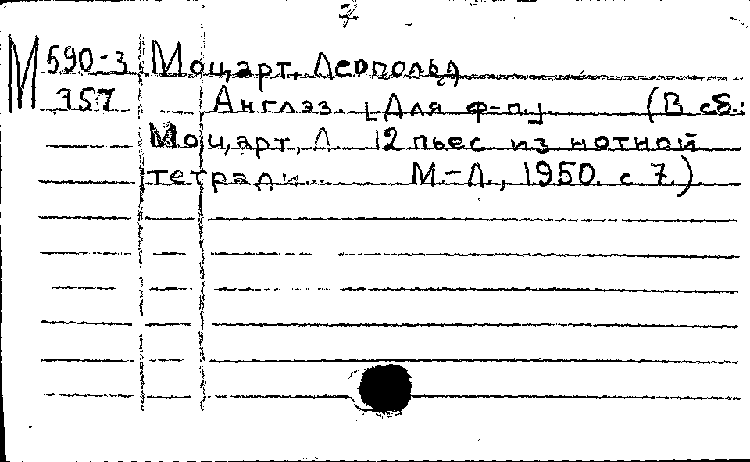 7
М 590-3 Моцарт, Леопольд
757 Англэз. [Для ф-п.] (В сб.:
Моцарт, Л. 12 пьес из нотной
тетради... М.-Л., 1950. с 7.)